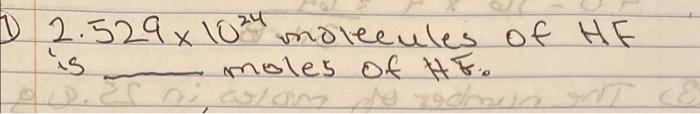 1) 2.529 x 10²⁴ molecules of HF
is ______ moles of HF.